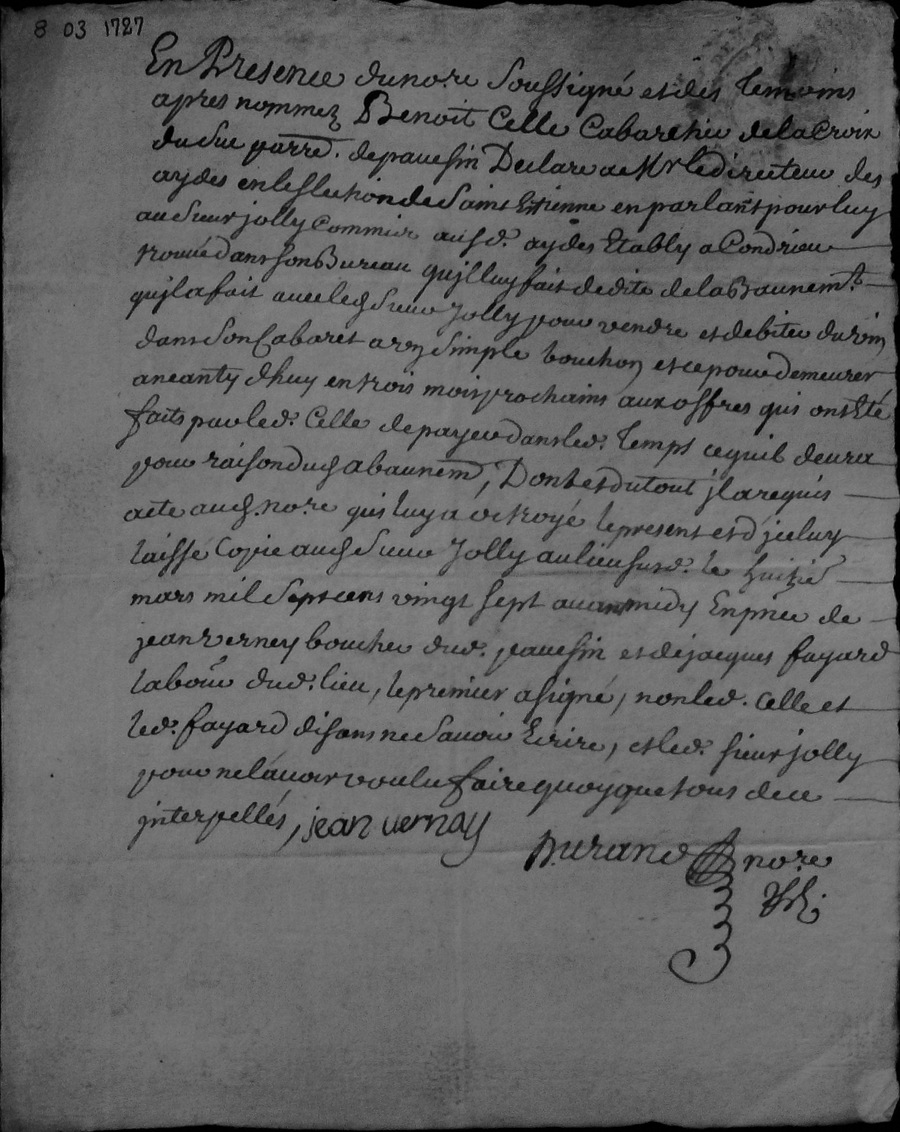 8 03 1727
En Presence du no.re soussigné et des temoins
apres nommez Benoit Celle Cabarethie de la Croix
du Suc parre. de pauesin Declare a Mr le directeur des
aydes en leslection de Saint Etienne en parlant pour luy
au Sieur jolly Commis ausd. aydes Etably a Condrieu
trouué dans son Bureau qu'jl luy fait dedite de labaunemt.
qu'jl a fait auec led Sieur Jolly pour vendre et debiter du vin
dans son Cabaret a vn simple bouchon et ce pour demeurer
aneanty dhuy en trois mois prochains aux offres qui ont Eté
faits par led. Celle de payer dans led. temps ce quil deura
pour raison dud abaunemt, Dont et du tout jl a requis
acte aud. no.re qui luy a octroyé le present et d'jceluy
laissé Copie aud Sieur Jolly au lieu susd. le huitie
mars mil Sept cens vingt sept auant midy En pnce de
jean verney boucher dud. pauesin et de jacques fayard
labour dud. lieu, le premier a signé, non led. Celle et
led. fayard disans ne Sauoir Ecrire, et led. sieur jolly
pour ne lauoir voulu faire quoyque tous de ce
jnterpellés, jean vernay
Durand no.re